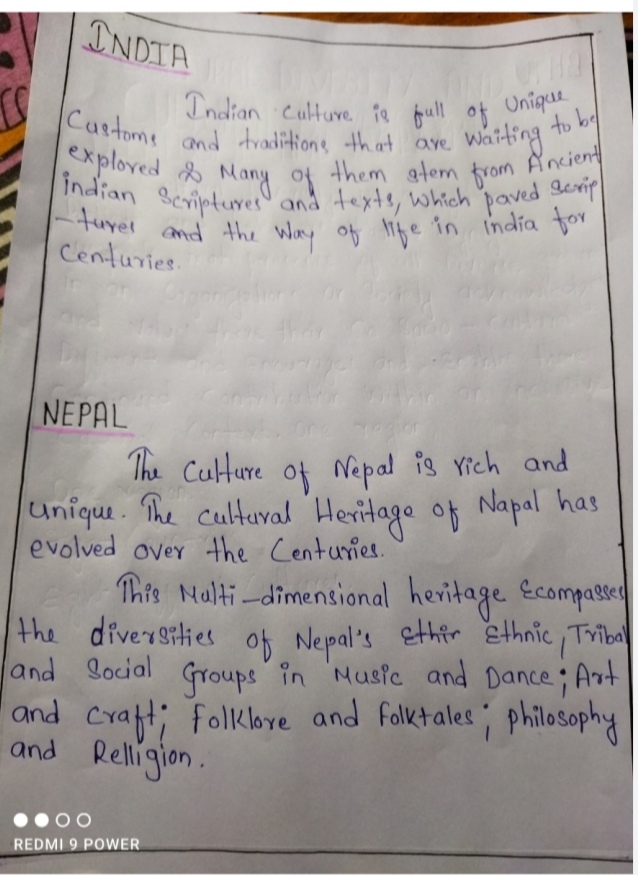 INDIA
Indian Culture is full of Unique
Customs and traditions that are Waiting to be
explored & Many of them stem from Ancient
indian Scriptures and texts, Which paved scrip
-tures and the Way of life in India for
Centuries.
NEPAL
The Culture of Nepal is rich and
unique. The cultural Heritage of Napal has
evolved over the Centuries.
This Multi-dimensional heritage Ecompasses
the diversities of Nepal's Ethir Ethnic, Tribal
and Social Groups in Music and Dance; Art
and craft; folklore and folktales; philosophy
and Relligion.
REDMI 9 POWER